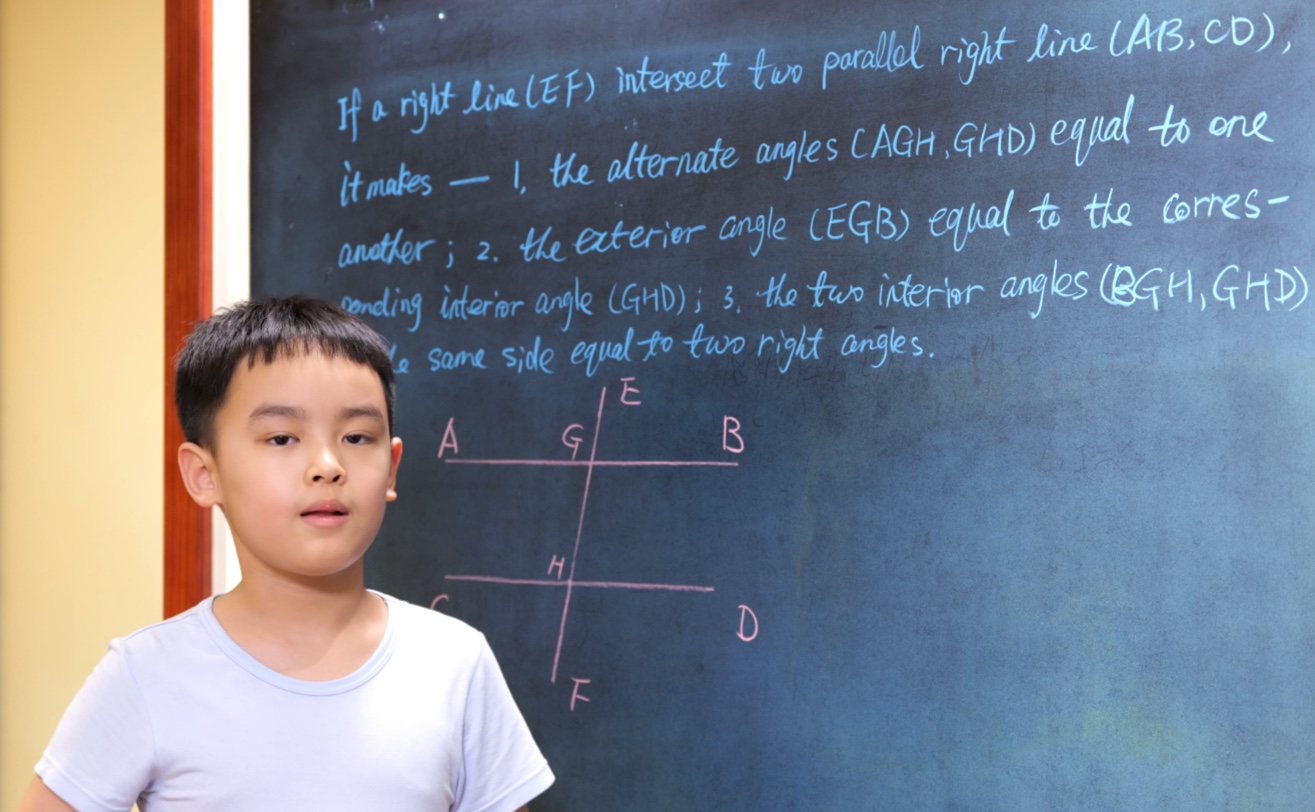 If a right line (EF) intersect two parallel right line (AB, CD),
it makes — 1. the alternate angles (AGH, GHD) equal to one
another; 2. the exterior angle (EGB) equal to the corres-
ponding interior angle (GHD); 3. the two interior angles (BGH, GHD)
same side equal to two right angles.
E
A G B
H
C D
F